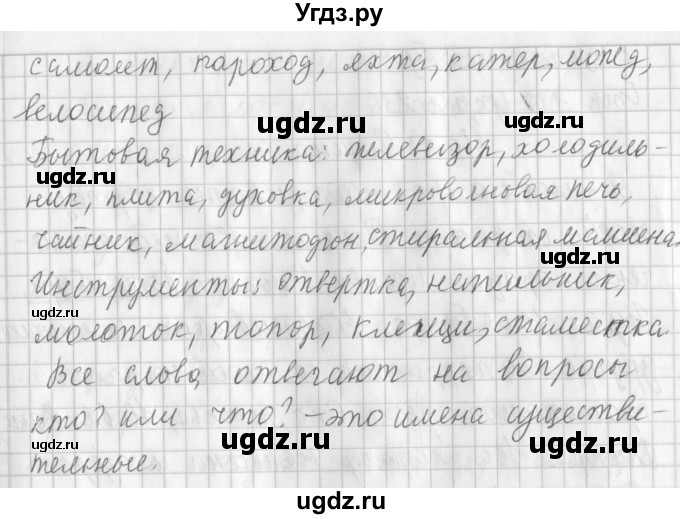 Угдз.ру
самолет, пароход, яхта, катер, мопед,
велосипед
ugdz.ru
Бытовая техника: телевизор, холодиль-
ugdz.ru
ugdz.ru
ник, плита, духовка, микроволновая печь,
чайник, магнитофон, стиральная машина.
ugdz.ru
Инструменты: отвертка, напильник,
ugdz.ru
молоток, топор, клещи, стаместка
ugdz.ru
Все слова, отвегают на вопросы
ugdz.ru
кто? или что? – это имена существи-
ugdz.ru
ugdz.ru
тельные.
ugdz.ru